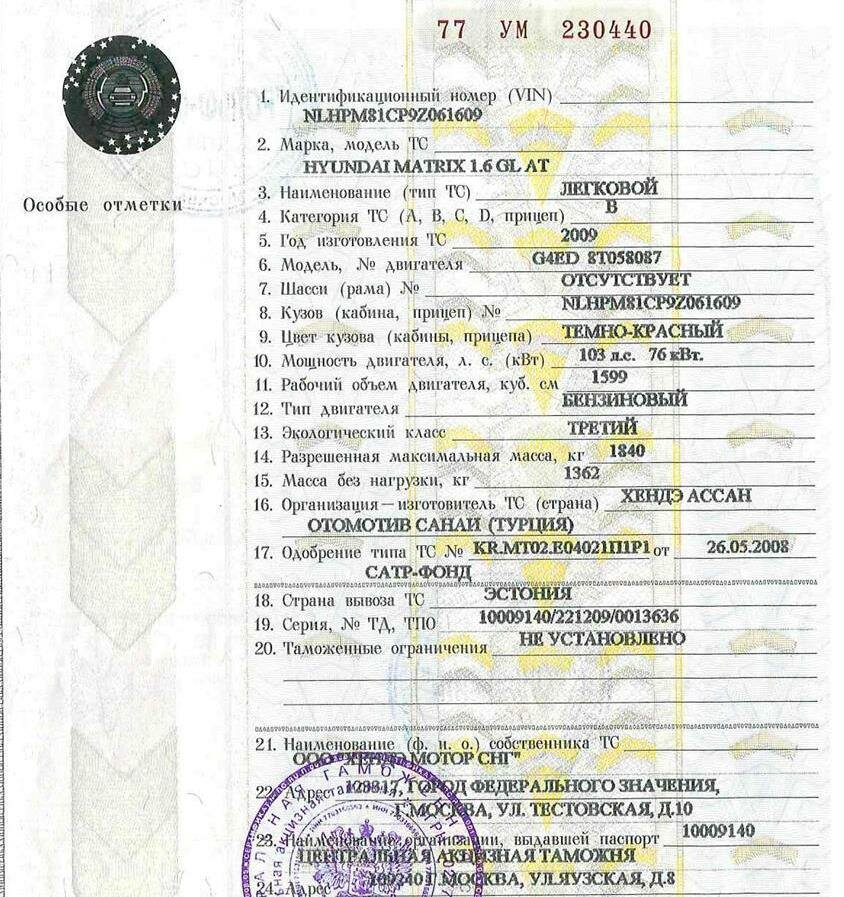 77 УМ 230440
1. Идентификационный номер (VIN)
NLHPM81CP9Z061609
2. Марка, модель ТС
HYUNDAI MATRIX 1.6 GL AT
Особые отметки
3. Наименование (тип ТС) ЛЕГКОВОЙ
4. Категория ТС (А, В, С, D, прицеп) В
5. Год изготовления ТС 2009
6. Модель, № двигателя G4ED 8T058087
7. Шасси (рама) № ОТСУТСТВУЕТ
8. Кузов (кабина, прицеп) № NLHPM81CP9Z061609
9. Цвет кузова (кабины, прицепа) ТЕМНО-КРАСНЫЙ
10. Мощность двигателя, л. с. (кВт) 103 л.с. 76 кВт.
11. Рабочий объем двигателя, куб. см 1599
12. Тип двигателя БЕНЗИНОВЫЙ
13. Экологический класс ТРЕТИЙ
14. Разрешенная максимальная масса, кг 1840
15. Масса без нагрузки, кг 1362
16. Организация—изготовитель ТС (страна) ХЕНДЭ АССАН
ОТОМОТИВ САНАИ (ТУРЦИЯ)
17. Одобрение типа ТС № KR.MT02.E04021П1Р1 от 26.05.2008
САТР-ФОНД
18. Страна вывоза ТС ЭСТОНИЯ
19. Серия, № ТД, ТПО 10009140/221209/0013636
20. Таможенные ограничения НЕ УСТАНОВЛЕНО
21. Наименование (ф. и. о.) собственника ТС
ООО "ХЕНДЭ МОТОР СНГ"
22. Адрес 123317, ГОРОД ФЕДЕРАЛЬНОГО ЗНАЧЕНИЯ,
Г.МОСКВА, УЛ. ТЕСТОВСКАЯ, Д.10
23. Наименование организации, выдавшей паспорт 10009140
ЦЕНТРАЛЬНАЯ АКЦИЗНАЯ ТАМОЖНЯ
24. Адрес 109240 Г.МОСКВА, УЛ.ЯУЗСКАЯ, Д.8